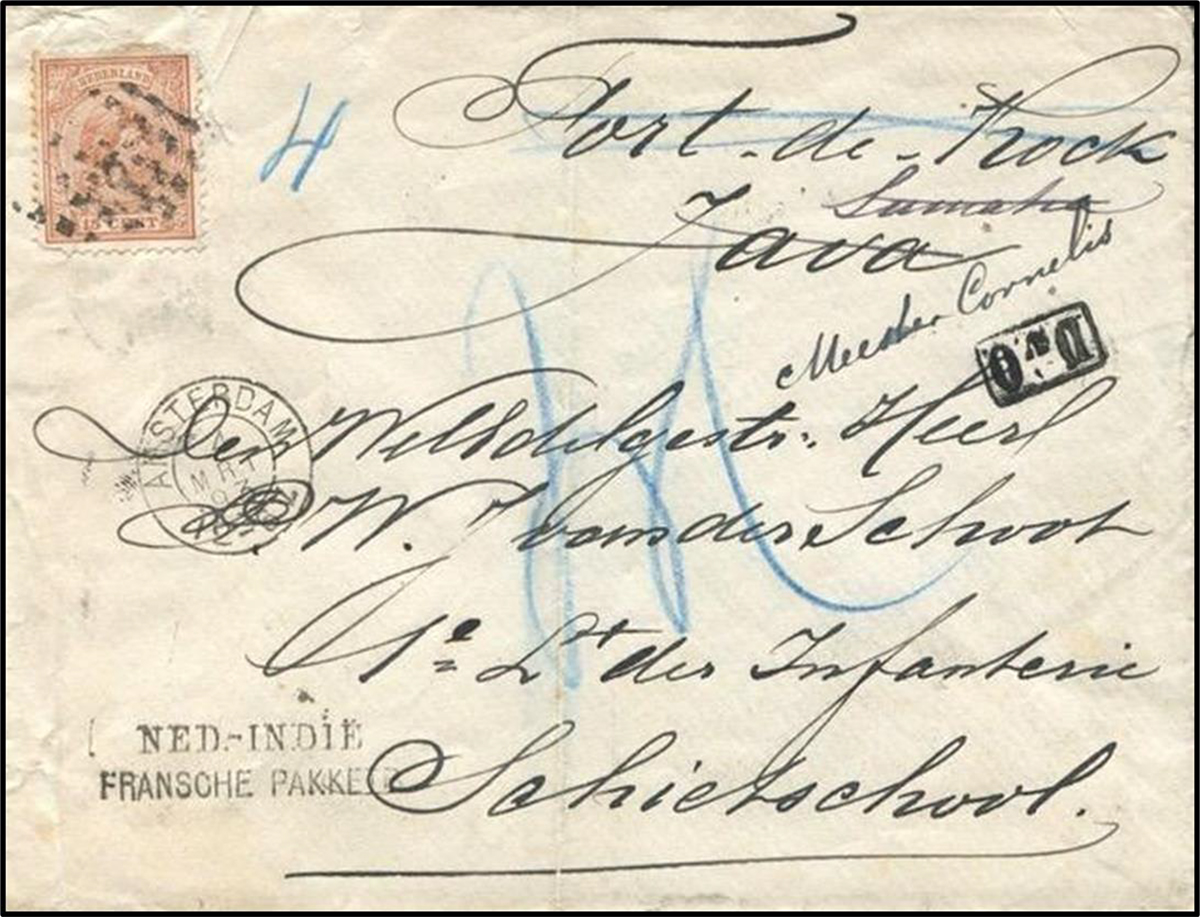 NEDERLAND
12½ CENT
4
Fort-de-Kock
Sumatra
Java
Meester Cornelis
AMSTERDAM
MRT
Den WelEdelgestr: Heer
W. J van der Schoot
1e Lt der Infanterie
NED-INDIË
FRANSCHE PAKKETB
Schietschool.